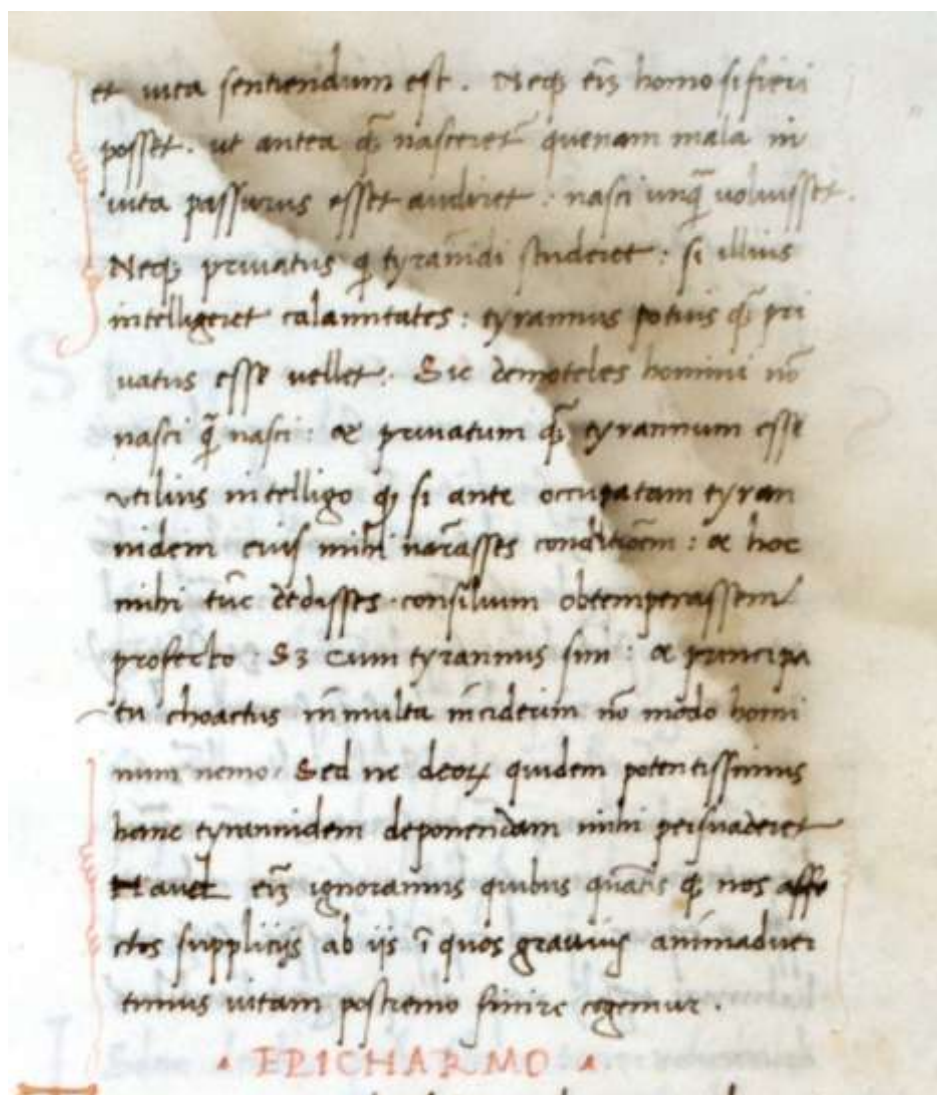 et uita sentiendum est . Neqꝫ eiꝫ homo si fieri
posset . ut antea qꝫ̃ nasceret᷑ quenam mala in
uita passurus esset audiret : nasci unq̃ uoluisset .
Neqꝫ priuatus q̃ tyrãnidi studeret : si illius
intelligeret calamitates : tyrannus potius qꝫ̃ pri
uatus esse uellet . Sic demoteles homini nõ
nasci q̃ nasci : & priuatum qꝫ̃ tyrannum esse
utilius intelligo qꝫ si ante occupatam tyran
nidem eius mihi narãsses conditiõem : & hoc
mihi tũc dedisses consilium obtemperassem
profecto : Sꝫ cum tyrannus sim : & principa
tu choactus in multa inciderim nõ modo homi
num nemo . Sed ne deoꝝ quidem potentissimus
hanc tyrannidem deponendam mihi persuaderet
Haud eiꝫ ignoramus quibus quãtis qꝫ nos affe
ctos supplicijs ab ijs ĩ quos grauius animaduer
timus uitam postremo finire cogemur .
• EPICHARMO •